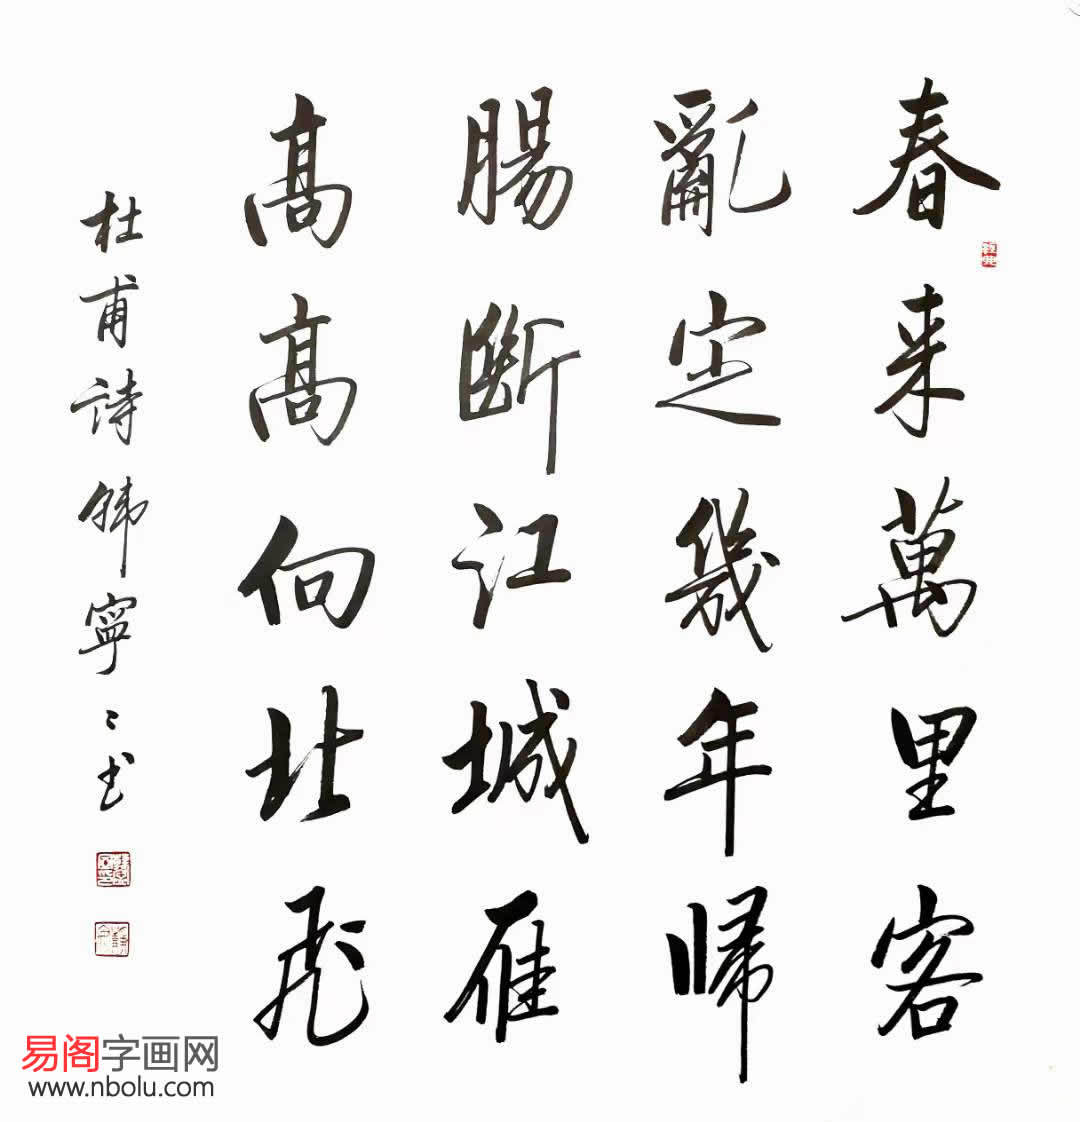 春来萬里客
亂定幾年歸
腸斷江城雁
髙髙向北飛
杜甫诗 韩寧寧书
易阁字画网
www.nbolu.com